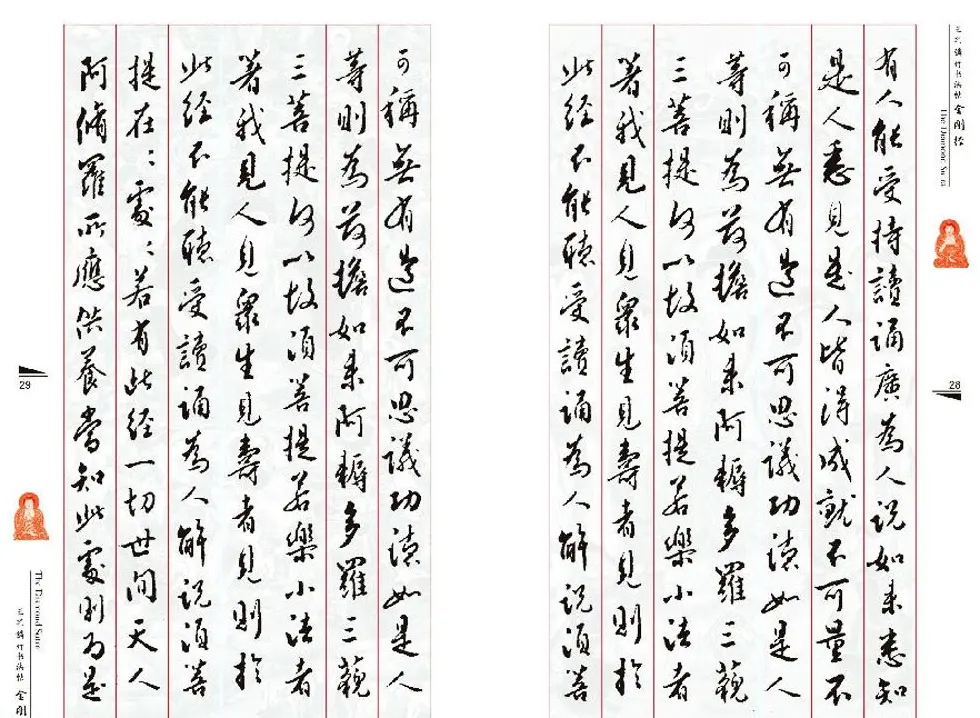 行书法帖 金刚经
The Diamond Sutra
28
有人能受持讀誦廣為人说如来悉知
是人悉見是人皆得成就不可量不
可稱無有邊不可思議功德如是人
等則為荷擔如来阿耨多羅三藐
三菩提何以故須菩提若樂小法者
著我見人見衆生見壽者見則於
此经不能聽受讀誦為人解说須菩
可稱無有邊不可思議功德如是人
等則為荷擔如来阿耨多羅三藐
三菩提何以故須菩提若樂小法者
著我見人見衆生見壽者見則於
此经不能聽受讀誦為人解说須菩
提在：處：若有此经一切世间天人
阿修羅所應供養當知此處則为是
29
The Diamond Sutra
行书法帖 金刚